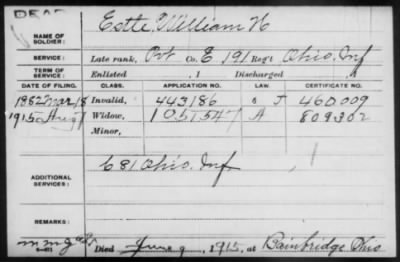 DEAD
NAME OF SOLDIER: Estle, William H
SERVICE: Late rank, Pvt Co. E 191 Reg't Ohio Inf
TERM OF SERVICE: Enlisted , 1 Discharged , 1
DATE OF FILING. CLASS. APPLICATION NO. LAW. CERTIFICATE NO.
1882 Mar 18 Invalid, 443186 J 460.009
1915 Aug 7 Widow, 1051547 A 809302
Minor,
E 81 Ohio. Inf
ADDITIONAL SERVICES:
REMARKS:
Died June 9, 1915, at Bainbridge Ohio